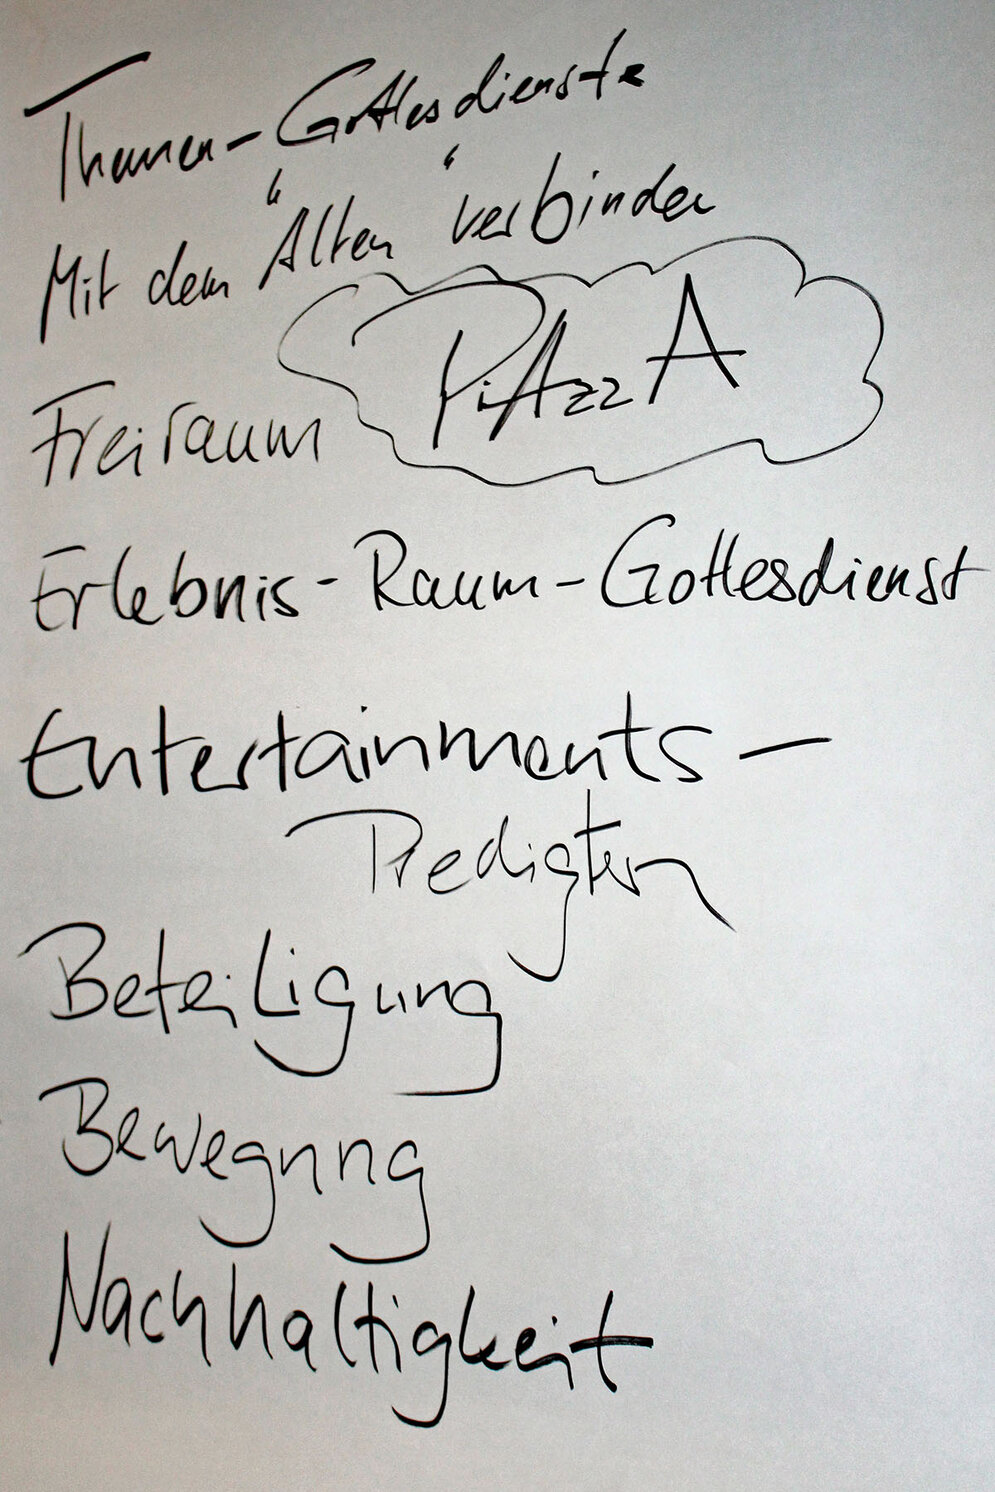 Themen-Gottesdienste
Mit dem "Alten" verbinden
PiAzzA
Freiraum
Erlebnis-Raum-Gottesdienst
Entertainments-
Predigten
Beteiligung
Bewegung
Nachhaltigkeit